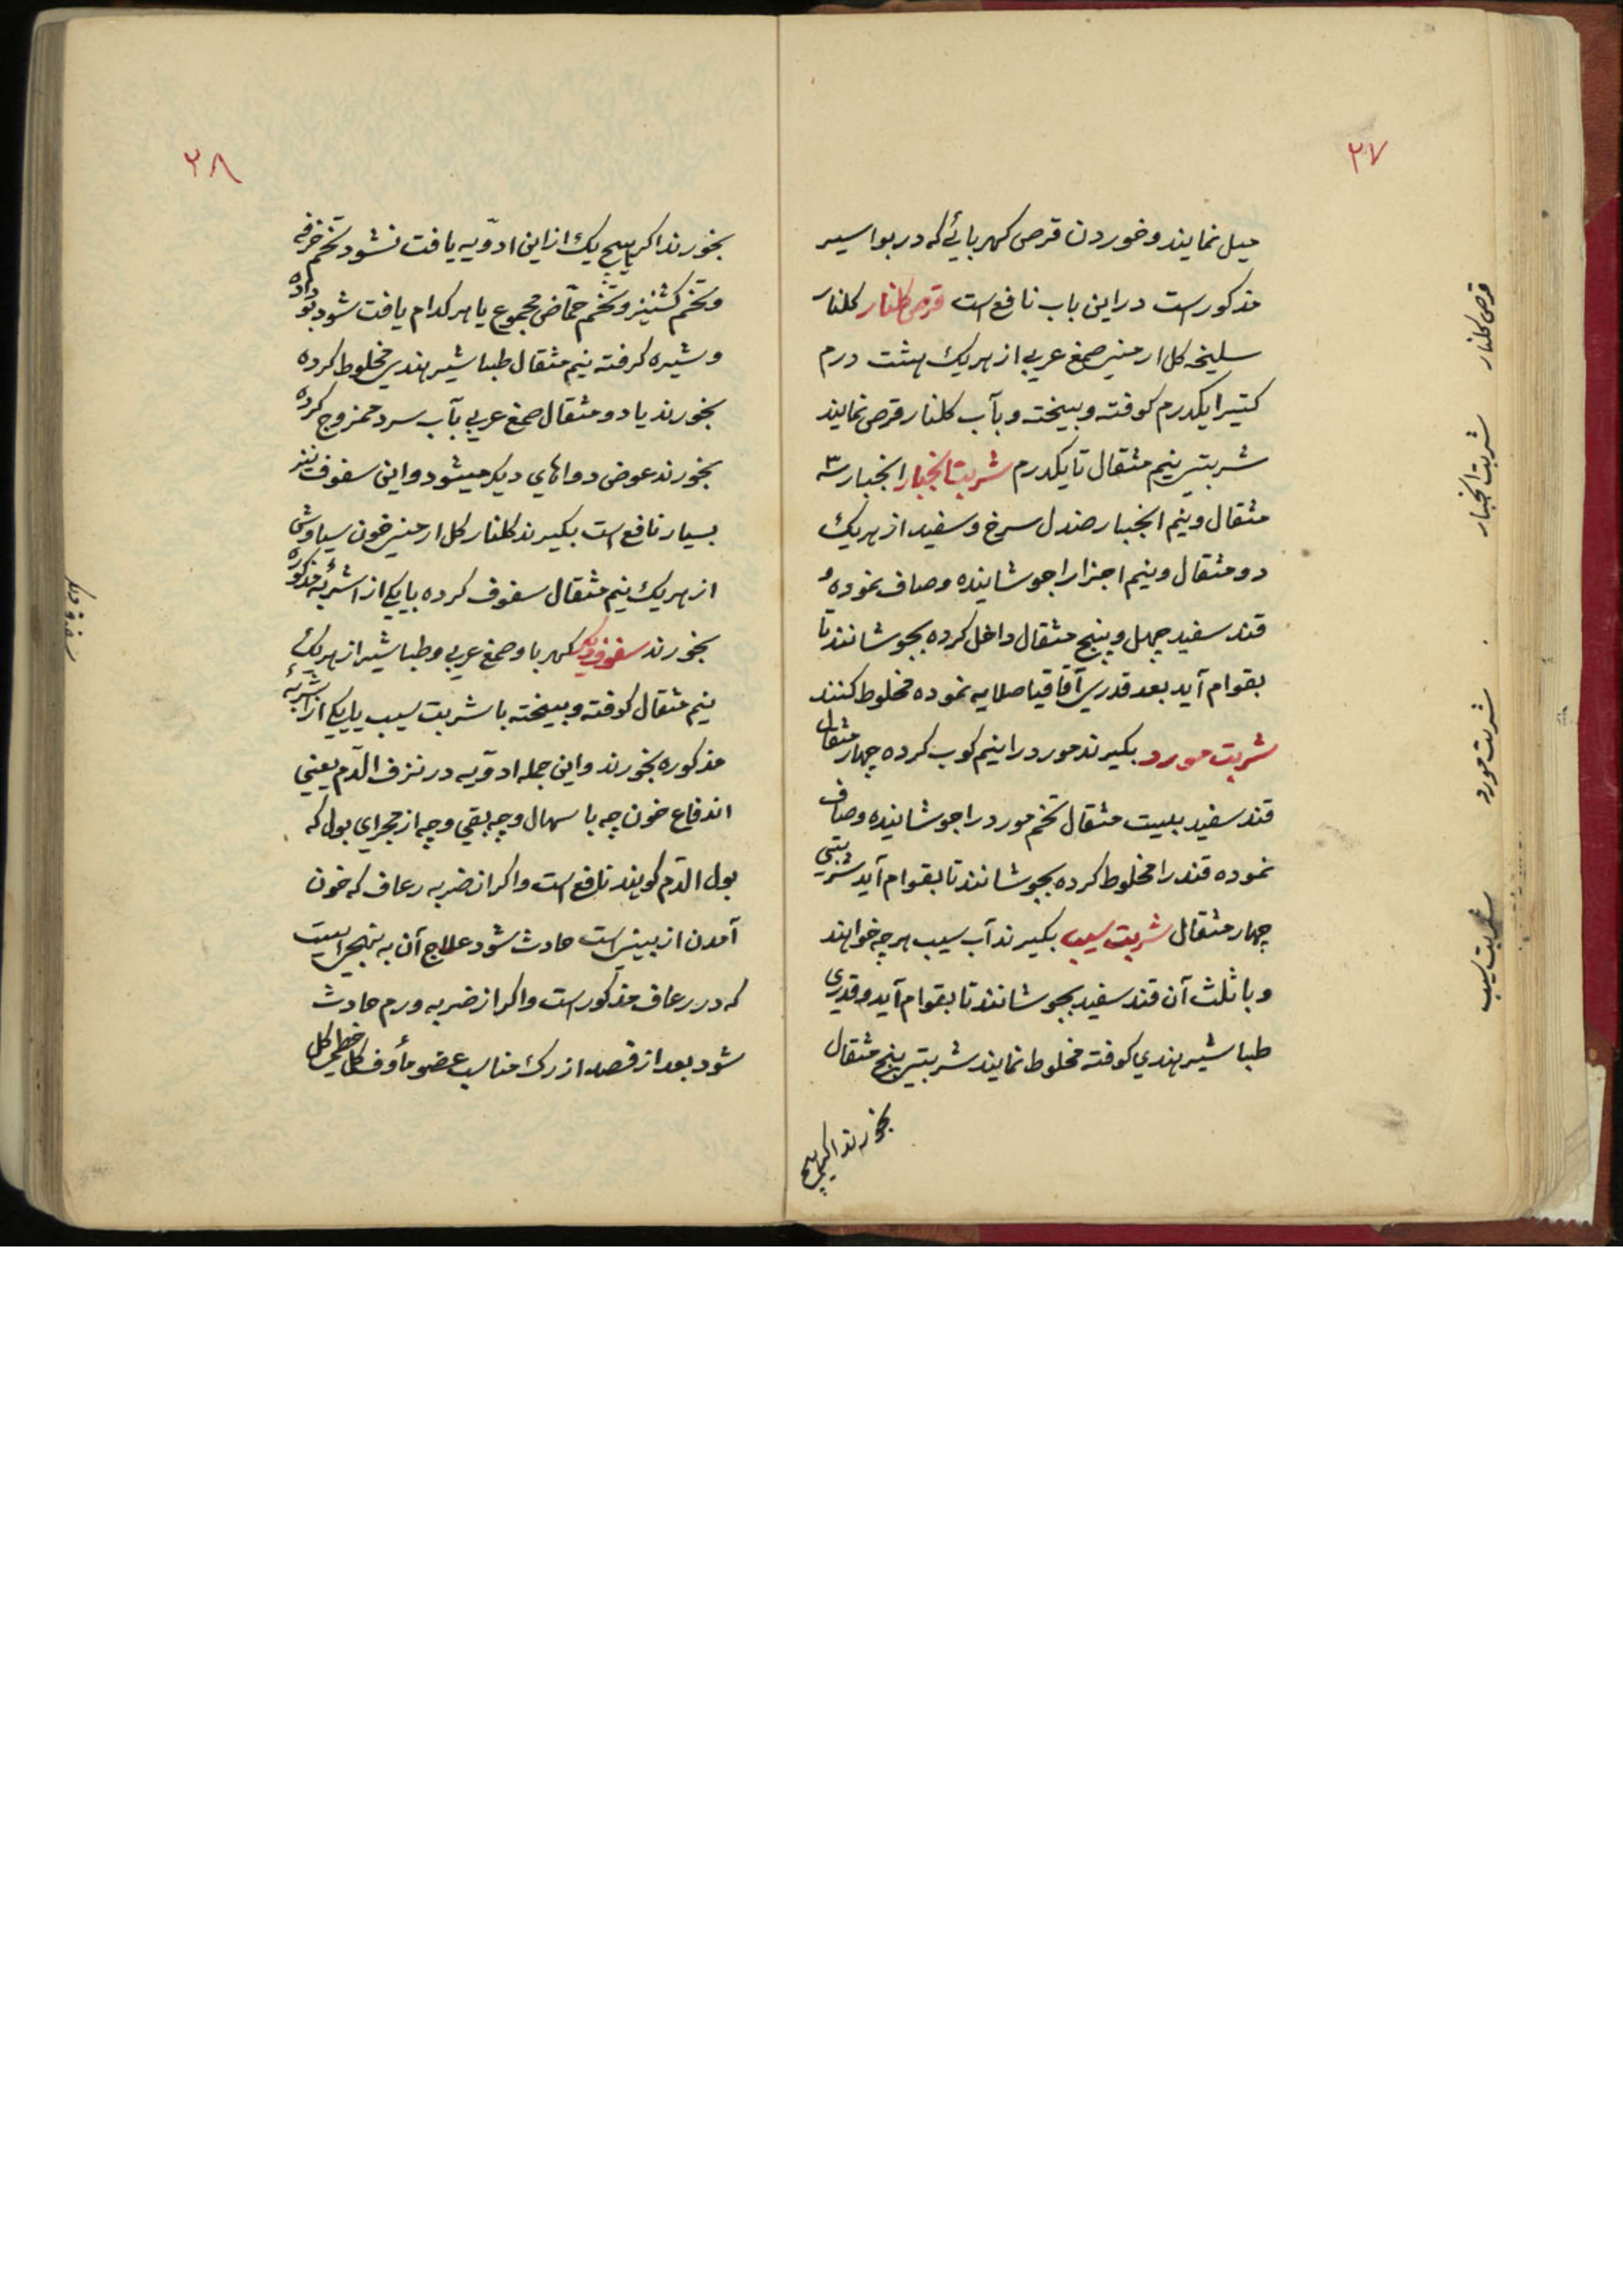 ۲۷
میل نمایند و خوردن قرص کهربائے که در بواسیر
مذکورست در این باب نافع است قرص کلنار کلنار
سلیخه کل ارمنی صمغ عربی از هریک هشت درم
کتیرا یکدرم کوفته و بیخته و بآب کلنار قرص نمایند
شربتی نیم مثقال تا یکدرم شربت انجبار انجبار سه
مثقال و نیم انجبار صندل سرخ و سفید از هریک
دو مثقال و نیم اجزا را جوشانیده و صاف نموده و
قند سفید چهل و پنج مثقال داخل کرده بجوشانند تا
بقوام آید بعد قدری آقاقیا صلایه نموده مخلوط کنند
شربت مورد بکیرند مورد را نیم کوب کرده چهار مثقال
قند سفید بیست مثقال تخم مورد را جوشانیده و صاف
نموده قند را مخلوط کرده بجوشانند تا بقوام آید شربتی
چهار مثقال شربت سیب بکیرند آب سیب هرچه خواهند
و با ثلث آن قند سفید بجوشانند تا بقوام آید و قدری
طباشیر هندی کوفته مخلوط نمایند شربتی پنج مثقال
بخورند اکر هیچ
قرص کلنار
شربت انجبار
شربت مورد
شربت سیب
۲۸
بخورند اکر هیچ یک از این ادویه یافت نشود تخم خرفه
و تخم کشنیز و تخم حمّاض مجموع یا هرکدام یافت شود بو داده
و شیره کرفته نیم مثقال طباشیر هندی مخلوط کرده
بخورند یا دو مثقال صمغ عربی بآب سرد ممزوج کرده
بخورند عوض دواهای دیکر میشود و این سفوف نیز
بسیار نافع است بکیرند کلنار کل ارمنی خون سیاوش
از هریک نیم مثقال سفوف کرده با یکی از اشربهٔ مذکوره
بخورند سفوف دیکر کهربا و صمغ عربی و طباشیر از هریک
نیم مثقال کوفته و بیخته با شربت سیب یا یکی از اشربهٔ
مذکوره بخورند و این جمله ادویه در نزف الدّم یعنی
اندفاع خون چه با سهال و چه بقی و چه از مجرای بول که
بول الدّم کویند نافع است و اکر از ضربه رعاف که خون
آمدن از بینی است حادث شود علاج آن به نهجی است
که در رعاف مذکورست و اکر از ضربه ورم حادث
شود بعد از فصد از رک مناسب عضو مأوف کل خطمی کل
سفوف دیکر